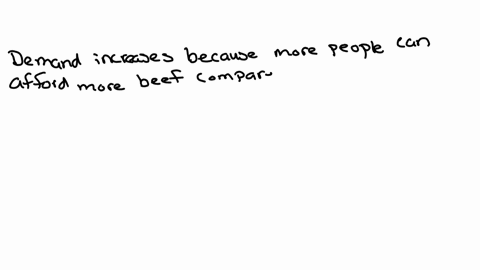 Demand increases because more people can
afford more beef compar